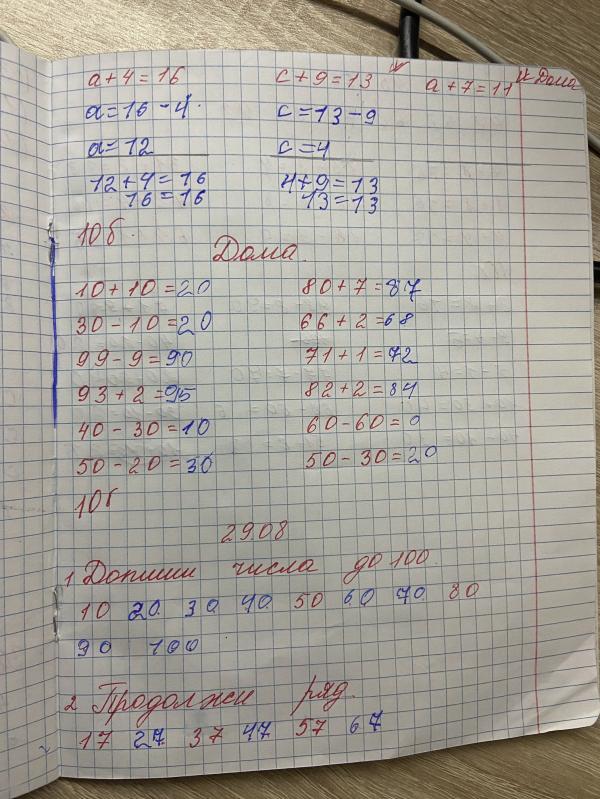 a + 4 = 16 c + 9 = 13 a + 7 = 11 Дома
a = 16 - 4 c = 13 - 9
a = 12 c = 4
12 + 4 = 16 4 + 9 = 13
16 = 16 13 = 13
10б.
Дома.
10 + 10 = 20 80 + 7 = 87
30 - 10 = 20 66 + 2 = 68
99 - 9 = 90 71 + 1 = 72
93 + 2 = 95 82 + 2 = 84
40 - 30 = 10 60 - 60 = 0
50 - 20 = 30 50 - 30 = 20
10б
29.08
1 Допиши числа до 100.
10 20. 30. 40. 50 60. 70. 80
90 100
2 Продолжи ряд.
17 27. 37 47 57 67